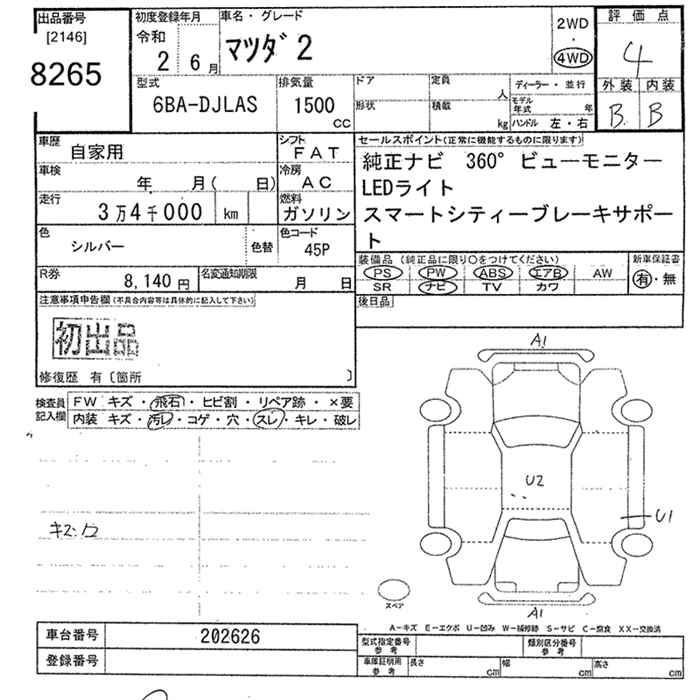 出品番号
[2146]
8265
初度登録年月
令和
2 6月
車名・グレード
マツダ2
2WD
・
4WD
評価点
4
外装 内装
B B
型式
6BA-DJLAS
排気量
1500
CC
ドア
形状
定員
人
積載
kg
ディーラー・並行
モデル年式 年
ハンドル 左・右
車歴
自家用
シフト
FAT
車検
年 月( 日)
冷房
AC
走行
3万4千000 km
燃料
ガソリン
色
シルバー
色替
色コード
45P
R券
8,140円
名変通知期限
月 日
セールスポイント(正常に機能するものに限ります)
純正ナビ 360°ビューモニター
LEDライト
スマートシティーブレーキサポー
ト
装備品(純正品に限り○をつけてください)
PS PW ABS エアB AW
SR ナビ TV カワ
新車保証書
有・無
後日品
注意事項申告欄(不具合内容等は具体的に記入して下さい)
初出品
修復歴 有〔箇所 〕
検査員記入欄
FW キズ・飛石・ヒビ割・リペア跡・×要
内装 キズ・汚レ・コゲ・穴・スレ・キレ・破レ
A1
U2
U1
A1
スペア
A-キズ E-エクボ U-凹み W-補修跡 S-サビ C-腐食 XX-交換済
車台番号
202626
登録番号
型式指定番号
参考
類別区分番号
参考
車庫証明用
参考
長さ cm
幅 cm
高さ cm